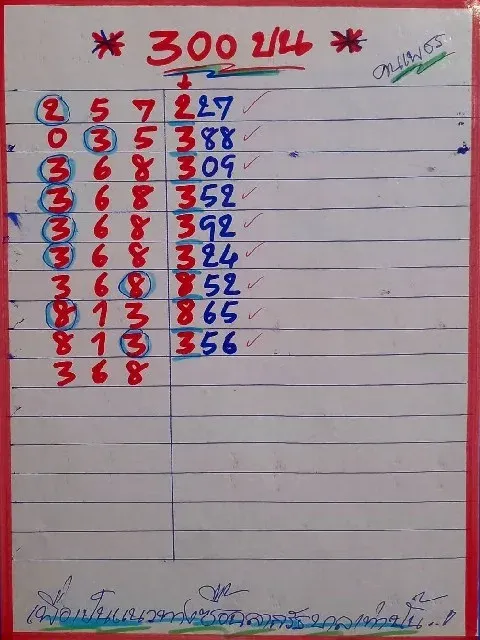 * 300 บน *
คนเพชร
2 5 7 227 ✓
0 3 5 388 ✓
3 6 8 309 ✓
3 6 8 352 ✓
3 6 8 392 ✓
3 6 8 324 ✓
3 6 8 852 ✓
8 1 3 865 ✓
8 1 3 356 ✓
3 6 8
เพื่อเป็นแนวทางซื้อสลากรัฐบาลเท่านั้น